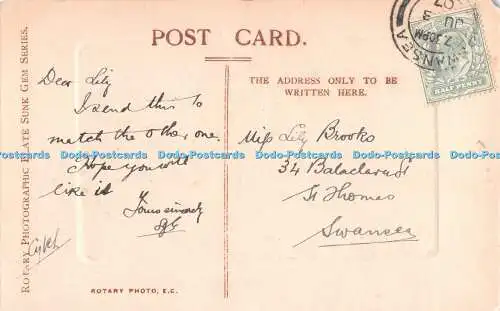 POST CARD.
ROTARY PHOTOGRAPHIC PLATE SUNK GEM SERIES.
Dear Lily
I send this to
match the other one.
Hope you will
like it
Yours sincerely
THE ADDRESS ONLY TO BE
WRITTEN HERE.
Miss Lily Brooks
34 Balaclava St
St Thomas
Swansea
SWANSEA
7.30PM
07
HALF PENNY
ROTARY PHOTO, E.C.
Dodo-Postcards Dodo-Postcards Dodo-Postcards Dodo-Postcards Dodo-Postcards